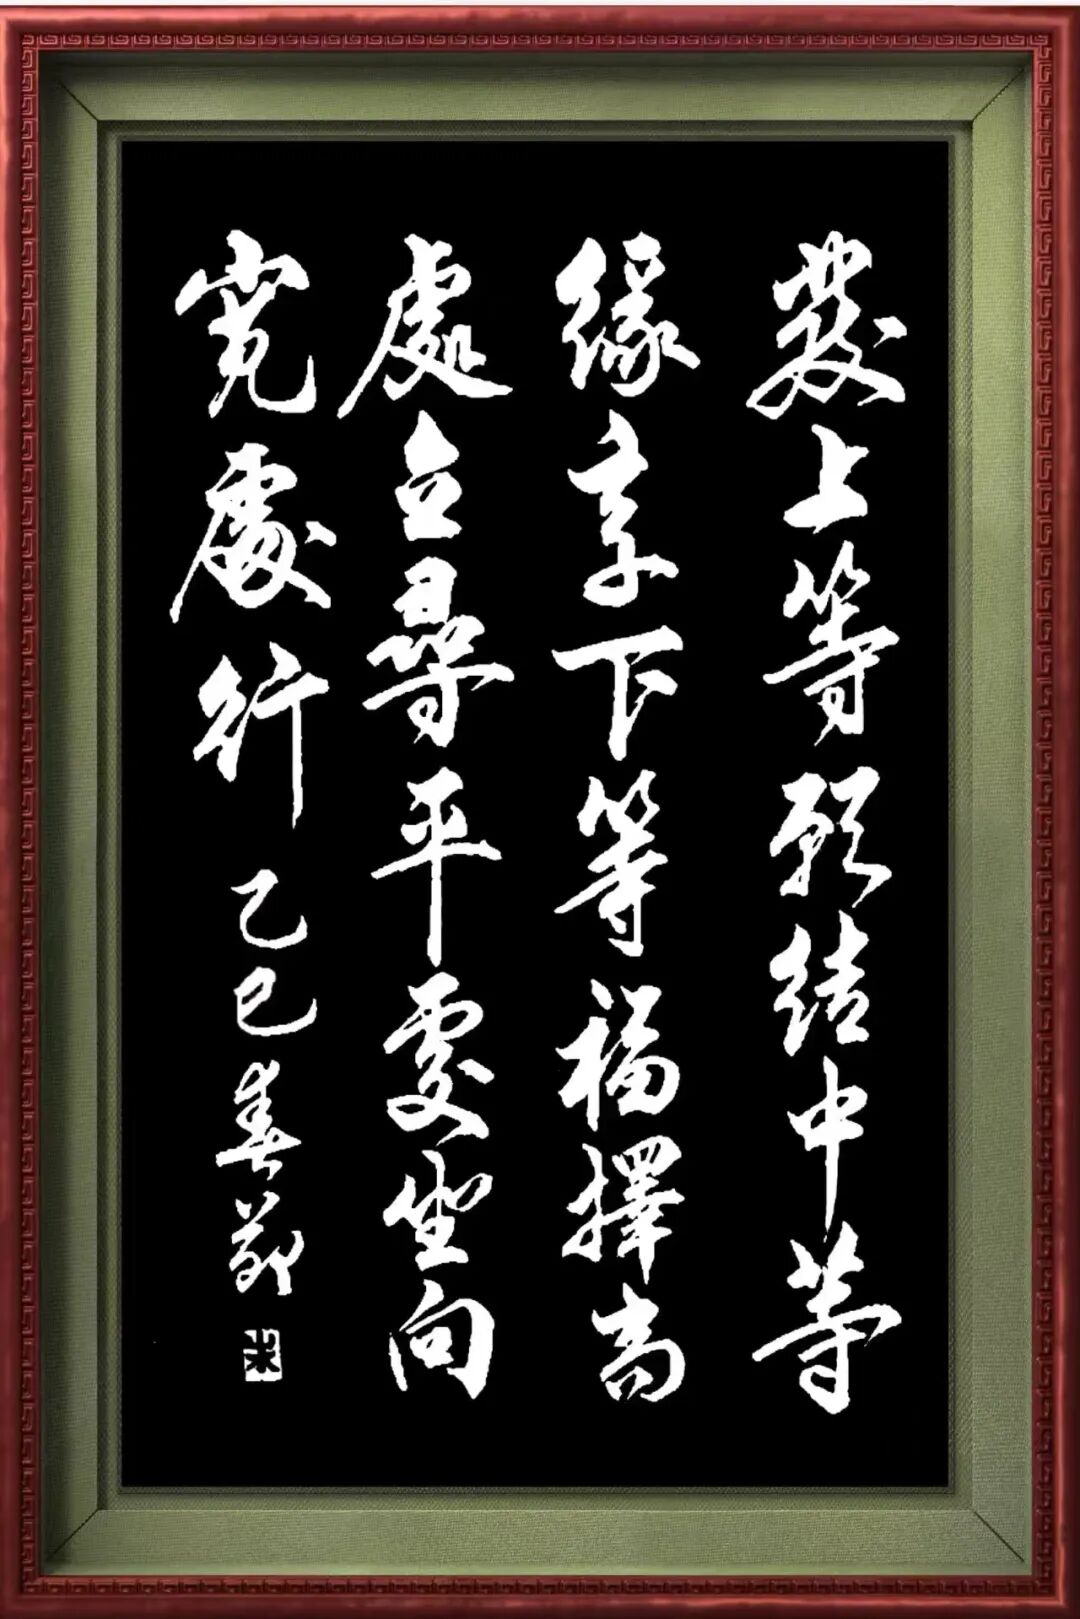 發上等願結中等
緣享下等福擇高
處立尋平處坐向
寬處行 乙巳春節